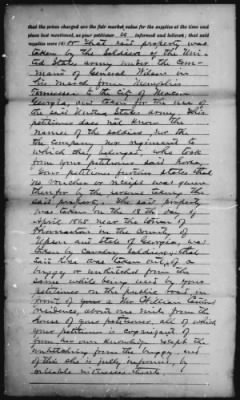 that the prices charged are the fair market value for the supplies at the time and
place last mentioned, as your petitioner is informed and believes; that said
supplies were (4) or that said property was
taken by the Soldiers of the Uni-
ted States army under the Com-
mand of General Wilson in
his march from Memphis
Tennessee to the City of Macon
Georgia, and taken for the use of
the said United States army. This
petitioner does not know the
names of the soldiers, nor the
the Company nor regiment to
which they belonged who took
from your petitioner said horse,
Your petitioner further states that
no voucher or receipt was given
therefor by the persons taking the
said property. The said property
was taken on the 18th day of
April 1865 near the town of
Thomaston in the County of
Upson and State of Georgia, was
taken by Cavalry soldiers; that
said horse was taken out of a
buggy or unhitched from the
same while being used by your
petitioner on the public road in
front of your a Mr William
residence, about one mile from the
house of your petitioner, all of which
your petitioner is cognizant of
from her own knowledge except the
unhitching from the buggy, and
of this she is fully informed, by
reliable witnesses